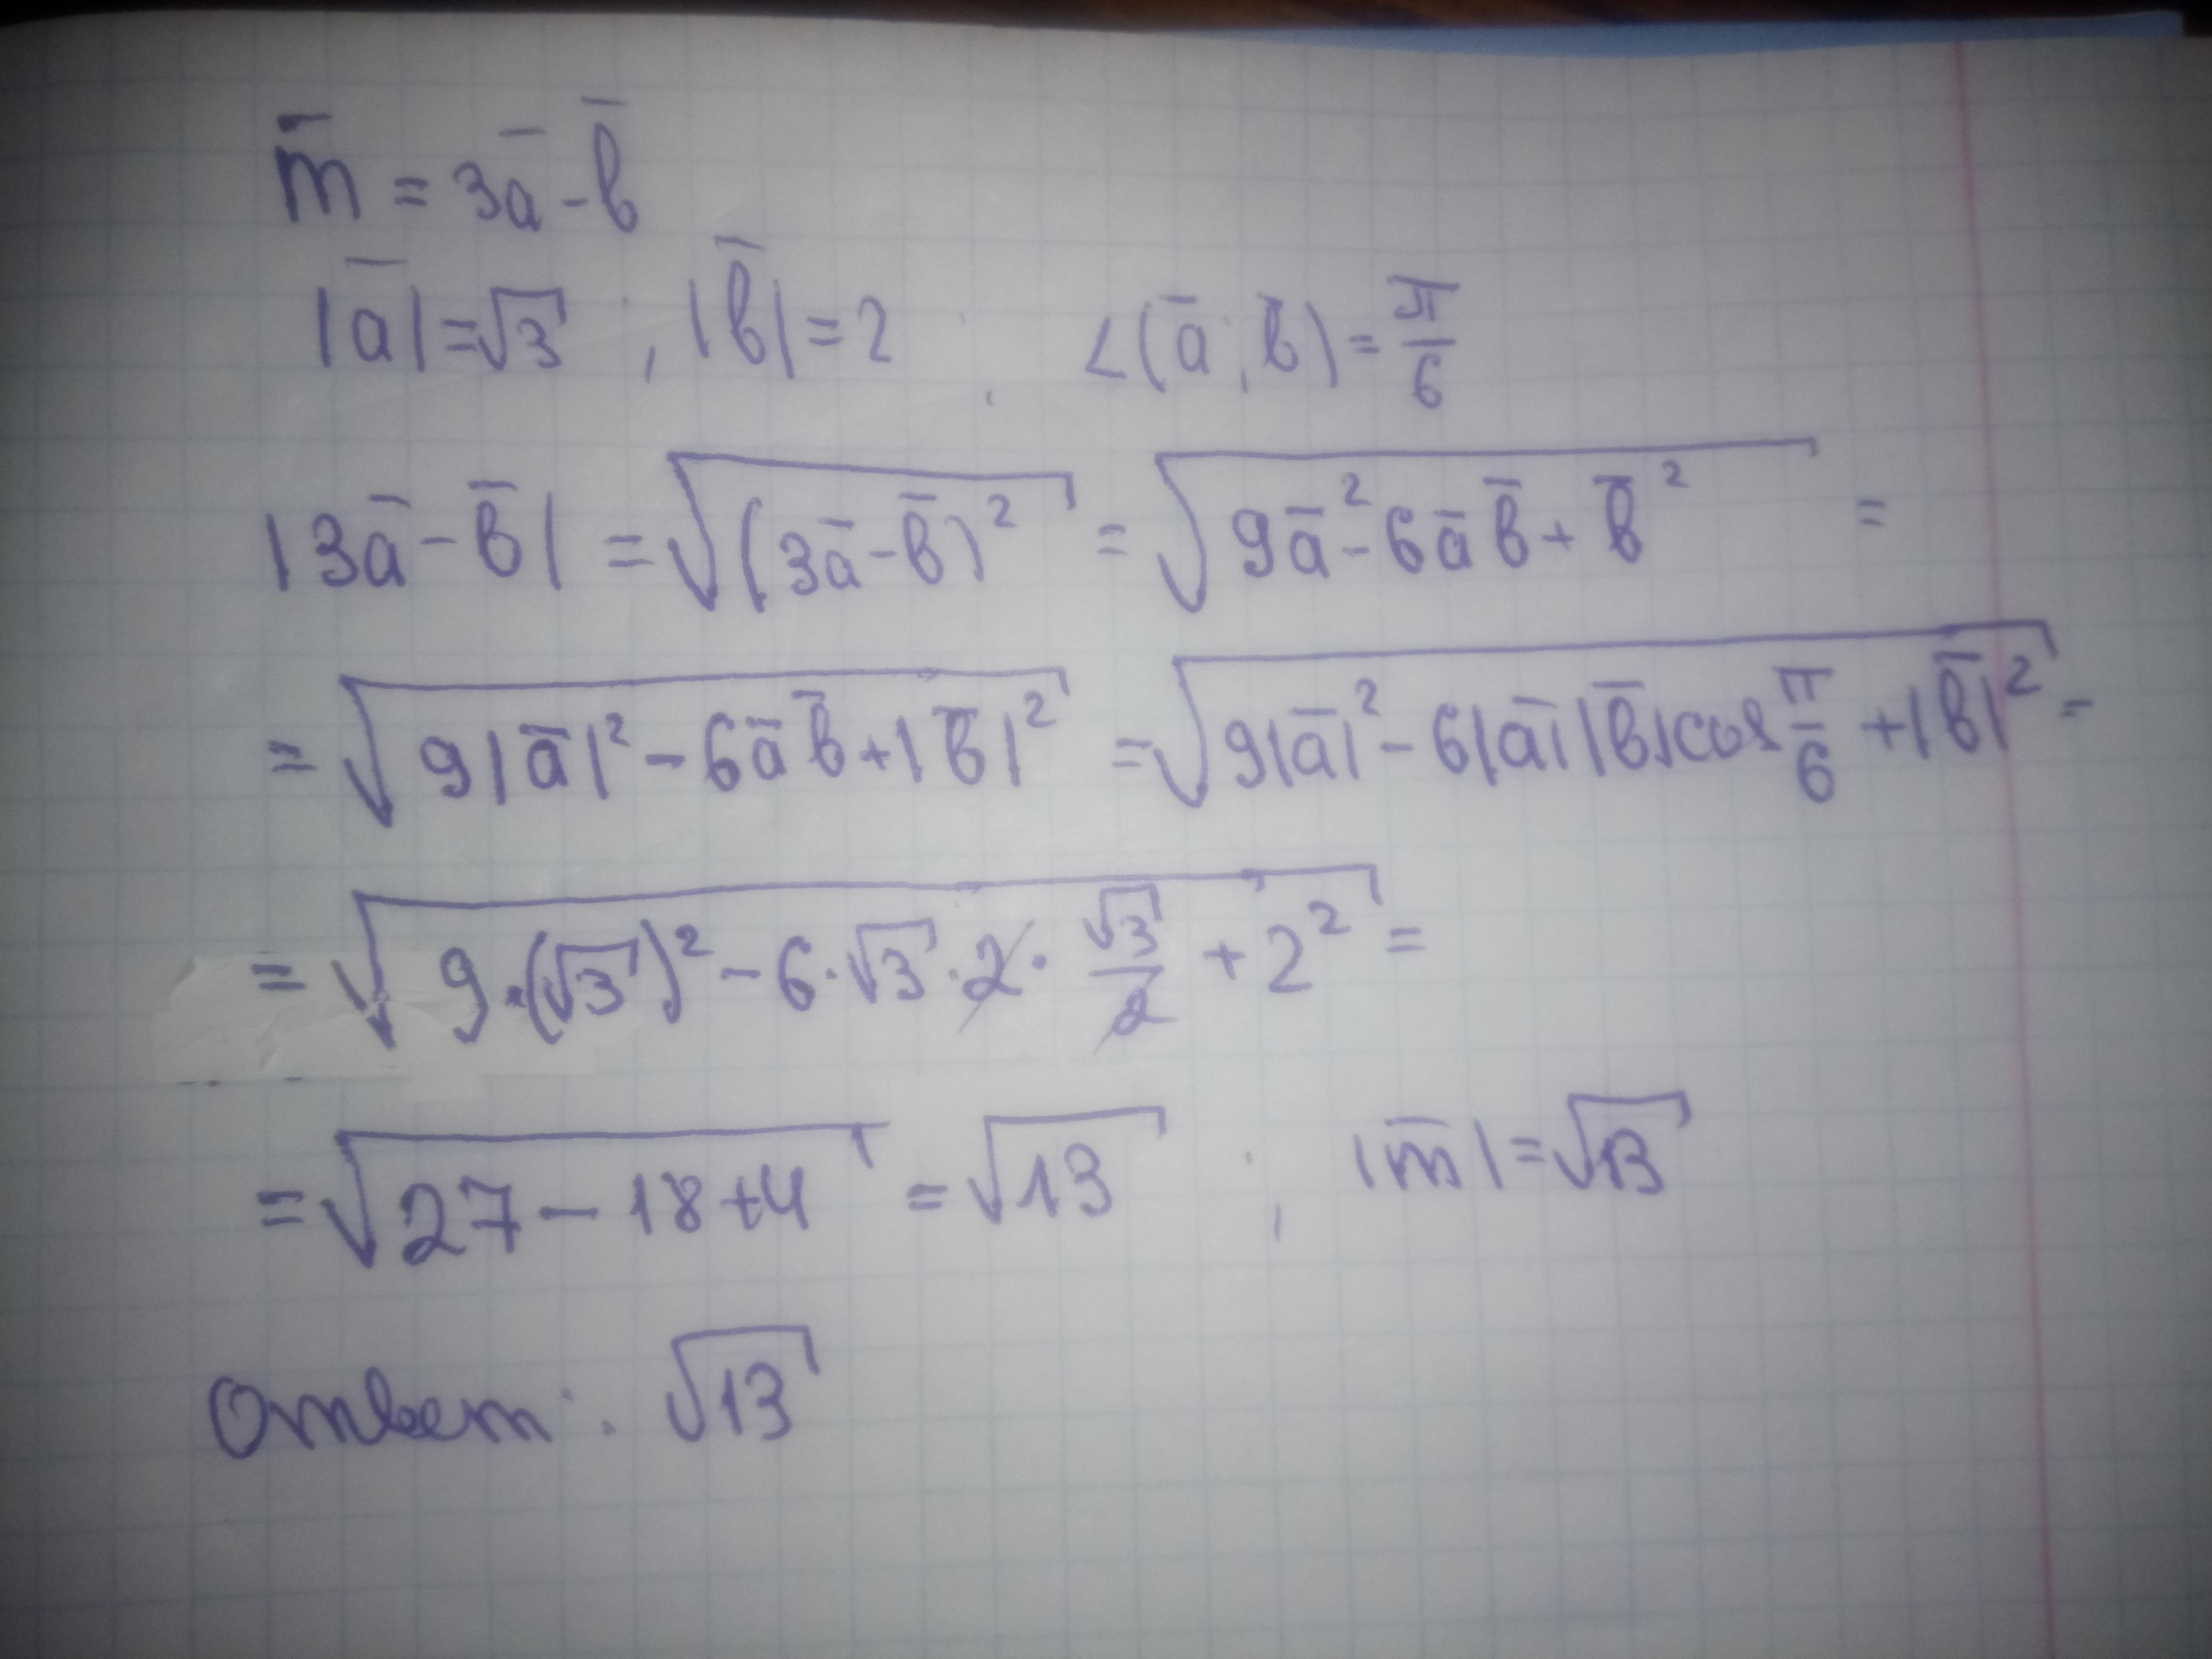 m̅ = 3a̅ - b̅
|a̅| = √3 , |b̅| = 2 ∠(a̅, b̅) = π/6
|3a̅ - b̅| = √((3a̅ - b̅)²) = √(9a̅² - 6a̅b̅ + b̅²) =
= √(9|a̅|² - 6a̅b̅ + |b̅|²) = √(9|a̅|² - 6|a̅||b̅|cos π/6 + |b̅|²) =
= √(9·(√3)² - 6·√3·2·√3/2 + 2²) =
= √(27 - 18 + 4) = √13 ; |m̅| = √13
Ответ: √13